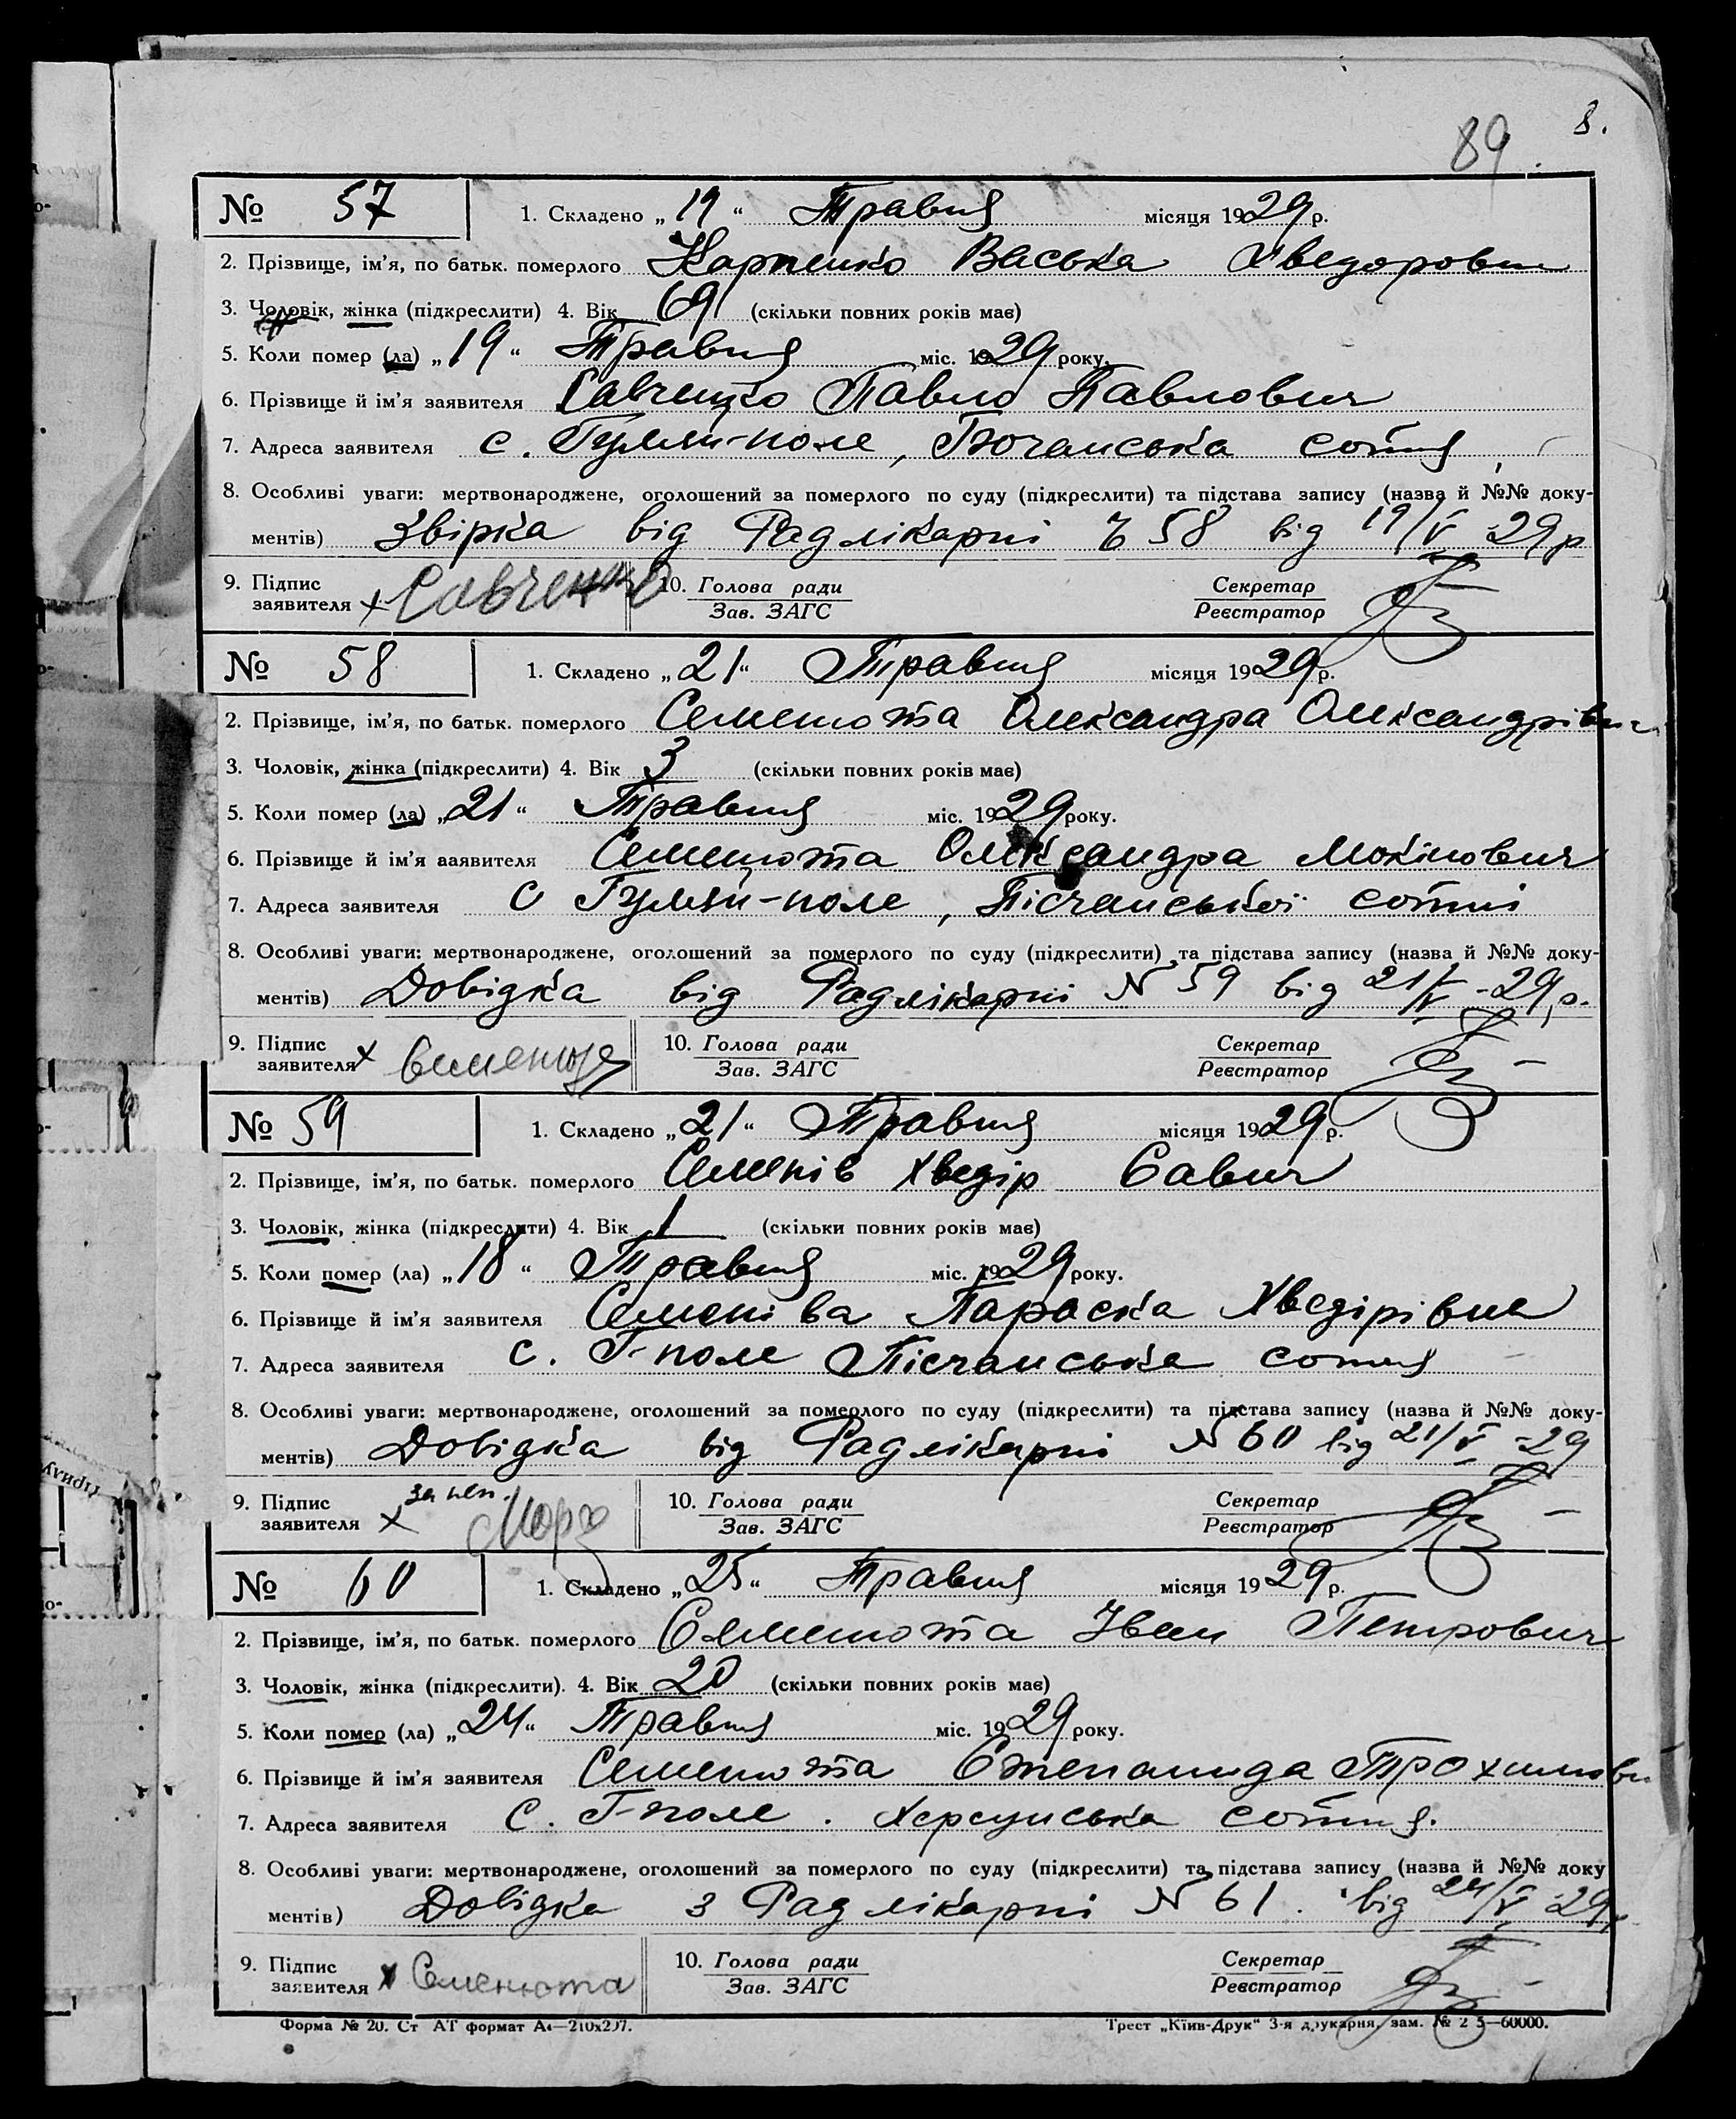 8.
89
№ 57 1. Складено „ 19 “ Травня місяця 1929р.
2. Прізвище, ім’я, по батьк. померлого Карпенко Васька Хведоровна
3. Чоловік, жінка (підкреслити) 4. Вік 69 (скільки повних років має)
5. Коли помер (ла) „ 19 “ Травня міс. 1929 року.
6. Прізвище й ім’я заявителя Савченко Павло Павлович
7. Адреса заявителя с. Гуляй-поле, сотня
8. Особливі уваги: мертвонароджене, оголошений за померлого по суду (підкреслити) та підстава запису (назва й №№ доку-
ментів) від Радлікарні 58 від 19/V-29р
9. Підпис Савченко 10. Голова ради Секретар
заявителя х Зав. ЗАГС Реєстратор
№ 58 1. Складено „ 21 “ Травня місяця 1929р.
2. Прізвище, ім’я, по батьк. померлого Семенюта Олександра Олександрівна
3. Чоловік, жінка (підкреслити) 4. Вік 3 (скільки повних років має)
5. Коли помер (ла) „ 21 “ Травня міс. 1929 року.
6. Прізвище й ім’я заявителя Семенюта Олександра Мокіпович
7. Адреса заявителя с Гуляй-поле, Пісчанської сотні
8. Особливі уваги: мертвонароджене, оголошений за померлого по суду (підкреслити) та підстава запису (назва й №№ доку-
ментів) Довідка від Радлікарні N 59 від 21/V-29р.
9. Підпис 10. Голова ради Секретар
заявителя х Зав. ЗАГС Реєстратор
№ 59 1. Складено „ 21 “ Травня місяця 1929р.
2. Прізвище, ім’я, по батьк. померлого Семенів Хведір Савич
3. Чоловік, жінка (підкреслити) 4. Вік 1 (скільки повних років має)
5. Коли помер (ла) „ 18 “ Травня міс. 1929 року.
6. Прізвище й ім’я заявителя Семенів ва Параска Хведірівна
7. Адреса заявителя с. Г-поле Пісчанська сотня
8. Особливі уваги: мертвонароджене, оголошений за померлого по суду (підкреслити) та підстава запису (назва й №№ доку-
ментів) Довідка від Радлікарні N 60 від 21/V-29
9. Підпис за неп. 10. Голова ради Секретар
заявителя х Зав. ЗАГС Реєстратор
№ 60 1. Складено „ 25 “ Травня місяця 1929р.
2. Прізвище, ім’я, по батьк. померлого Семенюта Іван Петрович
3. Чоловік, жінка (підкреслити). 4. Вік 20 (скільки повних років має)
5. Коли помер (ла) „ 24 “ Травня міс. 1929 року.
6. Прізвище й ім’я заявителя Семенюта Степанида Трохимовн
7. Адреса заявителя с. Г-поле. Херсунська сотня.
8. Особливі уваги: мертвонароджене, оголошений за померлого по суду (підкреслити) та підстава запису (назва й №№ доку
ментів) Довідка з Радлікарні N 61. від 24/V-29р
9. Підпис Семенюта 10. Голова ради Секретар
заявителя х Зав. ЗАГС Реєстратор
Форма № 20. Ст АТ формат А4—210х297. Трест „Київ-Друк“ 3-я друкарня, зам. № 2 5—60000.